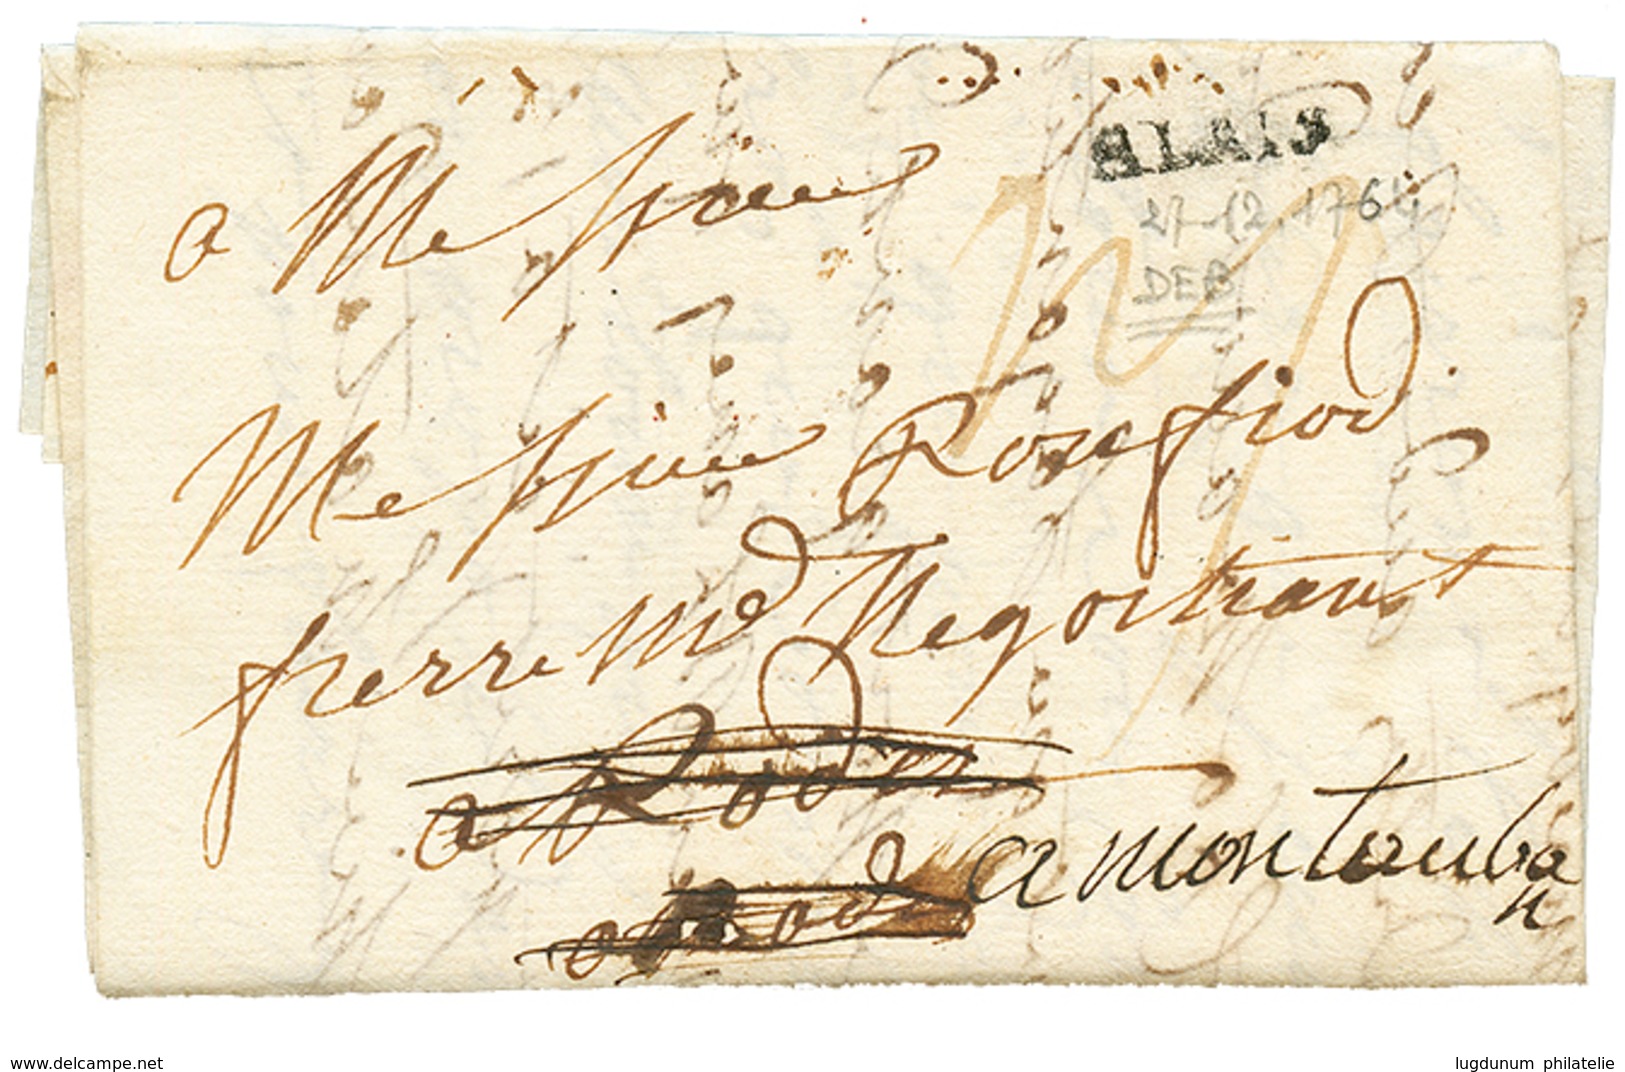 ALAIS
27-12.1764
DEB
a Messieurs
Messieurs
frerre Md Negotiant
a Rodes
a Rodes
a montauban
www.delcampe.net
lugdunum philatelie